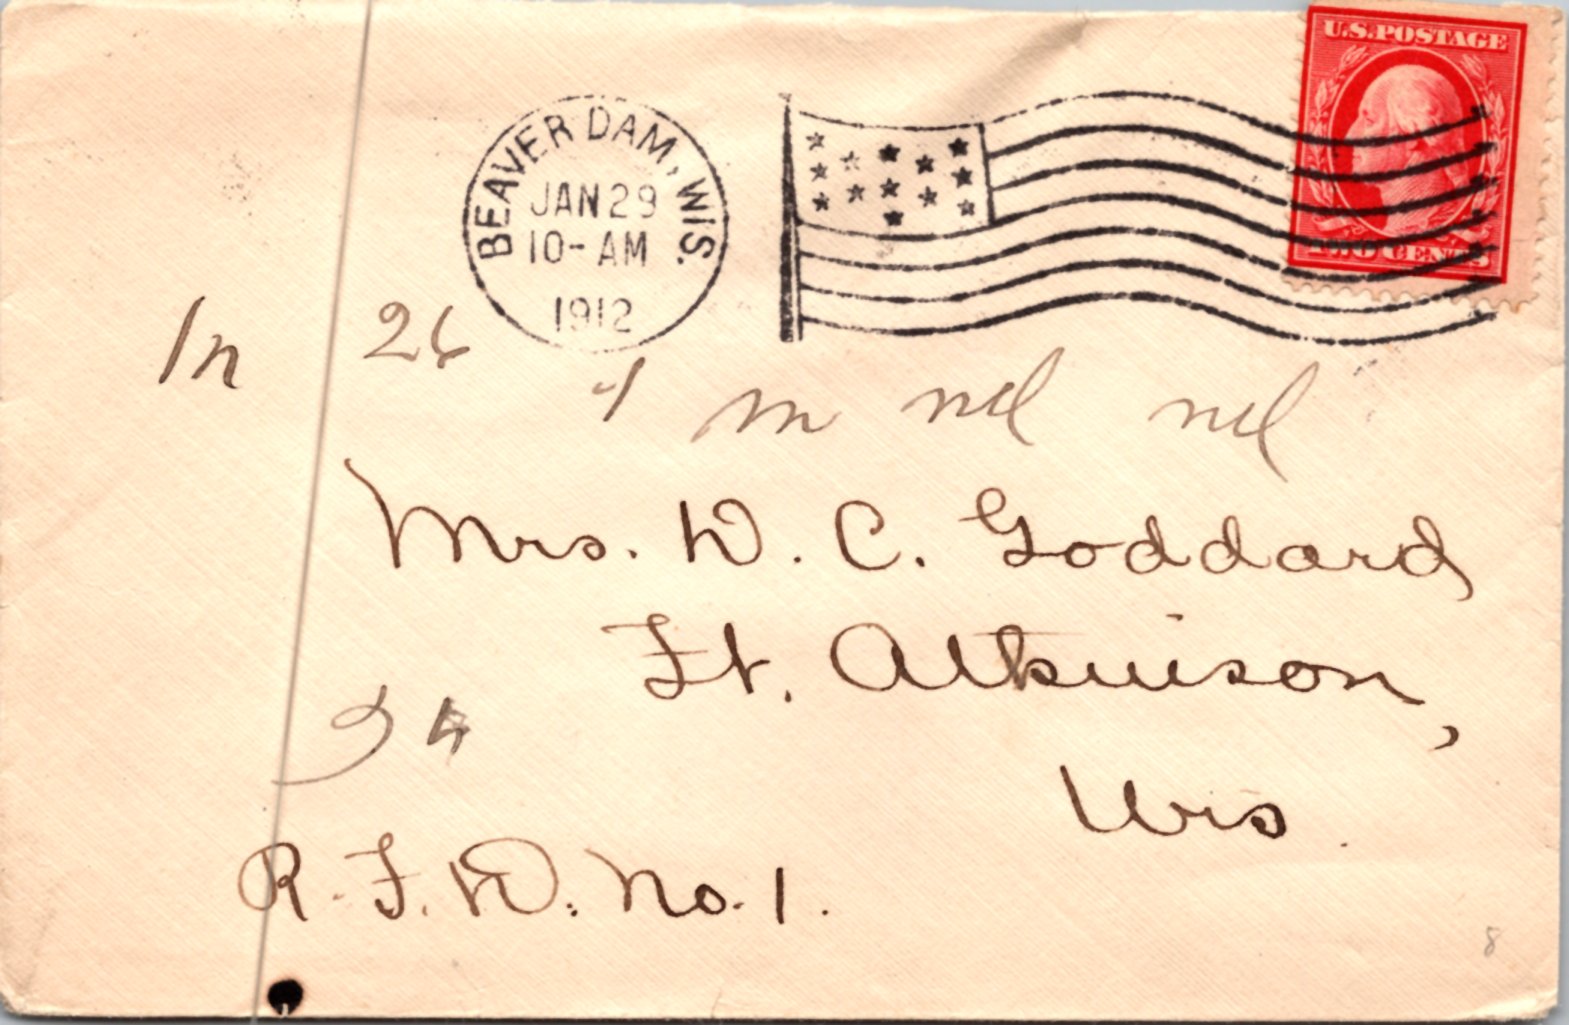 U.S. POSTAGE
BEAVER DAM, WIS.
JAN 29
10-AM
1912
TWO CENTS
In 26
Mrs. D. C. Goddard
Ft. Atkinson,
Wis.
R. F. D. No. 1.
8